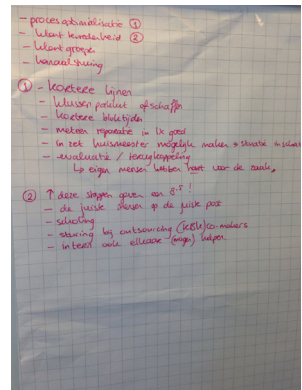 - procesoptimalisatie ①
- klant tevredenheid ②
- klant groepen
- kanaalsturing
① - kortere lijnen
- klussenpakket afschaffen
- kortere bloktijden
- meteen reparatie in 1x goed
- inzet huismeester mogelijk maken + situatie
- evaluatie / terugkoppeling
↳ eigen mensen hebben hart voor de zaak.
② ↑ deze stappen geven een !
- de juiste mensen op de juiste post
- scholing
- sturing bij outsourcing co-makers
- intern ook elkaar (mogen) helpen